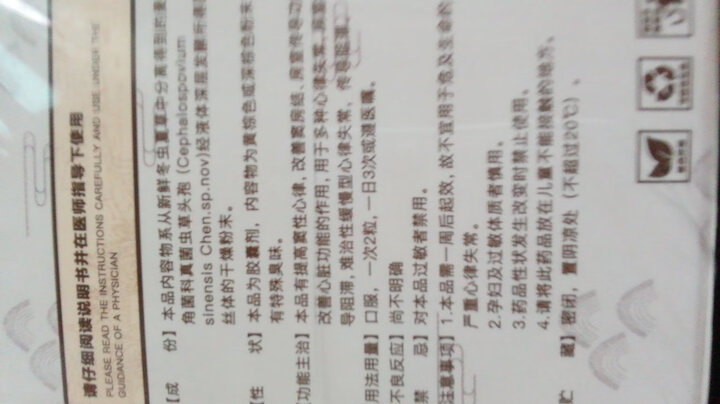 请仔细阅读说明书并在医师指导下使用
PLEASE READ THE INSTRUCTIONS CAREFULLY AND USE UNDER THE
GUIDANCE OF A PHYSICIAN
【成 份】本品内容物系从新鲜冬虫夏草中分离得到的麦
角菌科真菌虫草头孢(Cephalosporium
sinensis Chen.sp.nov)经液体深层发酵所得菌
丝体的干燥粉末。
【性 状】本品为胶囊剂，内容物为黄棕色或深棕色粉末
有特殊臭味。
【功能主治】本品有提高窦性心律、改善窦房结、房室传导功
改善心脏功能的作用,用于多种心律失常、房室
导阻滞,难治性缓慢型心律失常、传导阻滞。
用法用量】口服，一次2粒，一日3次或遵医嘱。
不良反应】尚不明确
禁 忌】对本品过敏者禁用。
注意事项】1.本品需一周后起效，故不宜用于危及生命的
严重心律失常。
2.孕妇及过敏体质者慎用。
3.药品性状发生改变时禁止使用。
4.请将此药品放在儿童不能接触的地方。
贮 藏】密闭，置阴凉处（不超过20℃）。